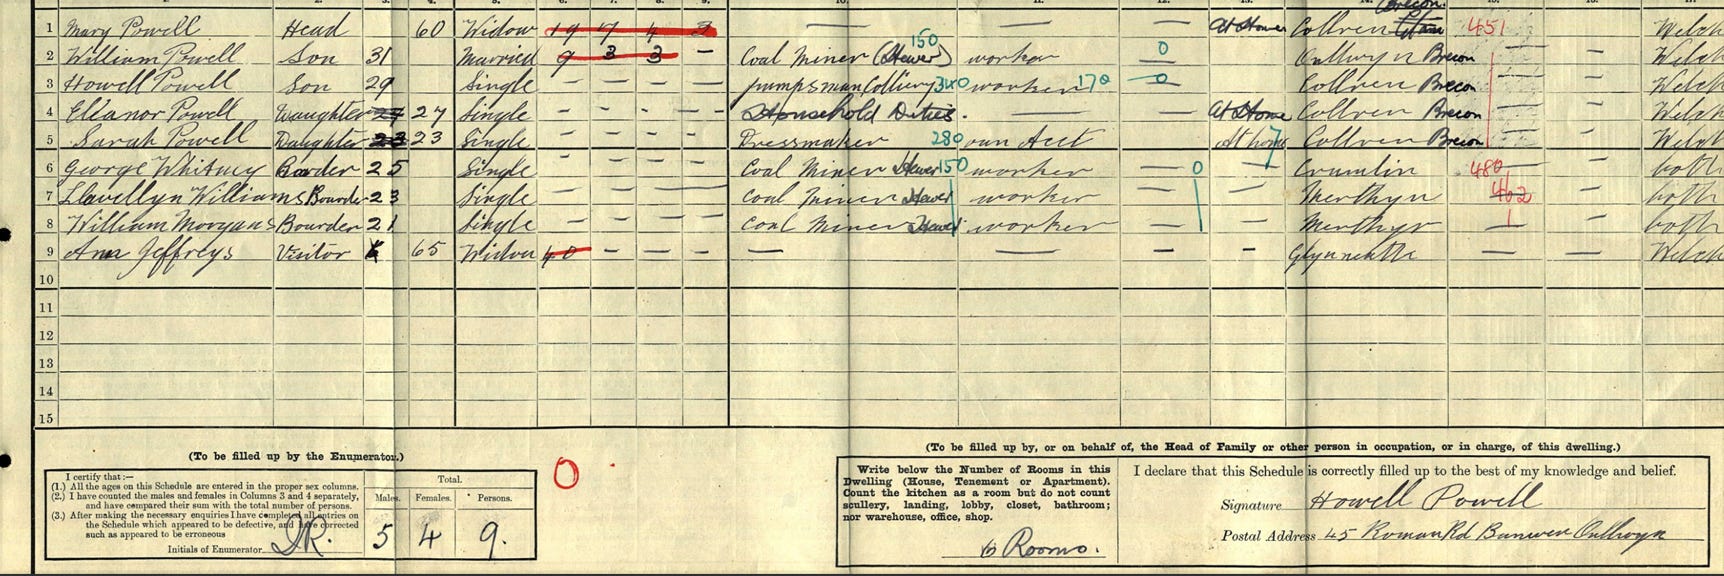 1 Mary Powell Head 60 Widow 19 7 4 3 — — — At Home Collren Brecon 451 Welch
2 William Powell Son 31 Married 9 3 3 – Coal Miner (Hewer) 150 worker 0 Onllwyn Brecon — – Welch
3 Howell Powell Son 29 Single – – – – pumpsman Colliery 340 worker 170 0 Collren Brecon — – Welch
4 Eleanor Powell Daughter 27 27 Single – – – – Household Duties. At Home Collren Brecon — – Welch
5 Sarah Powell Daughter 23 23 Single – – – – Dressmaker 280 own Acct At home 7 Collren Brecon — – Welch
6 George Whitney Boarder 25 Single – – – – Coal Miner Hewer 150 worker — 0 Crumlin 480 — – both
7 Llewellyn Williams Boarder 23 Single – – – – Coal Miner Hewer worker — Merthyr 402 – both
8 William Morgans Boarder 21 Single – – – – Coal Miner Hewer worker — Merthyr — – both
9 Ann Jeffreys Visitor 65 Widow 40 – – – — — – – Glynneath — — Welch
10
11
12
13
14
15
(To be filled up by the Enumerator.)
I certify that:—
(1.) All the ages on this Schedule are entered in the proper sex columns.
(2.) I have counted the males and females in Columns 3 and 4 separately,
and have compared their sum with the total number of persons.
(3.) After making the necessary enquiries I have completed all entries on
the Schedule which appeared to be defective, and have corrected
such as appeared to be erroneous
Initials of Enumerator
Total.
Males. Females. Persons.
5 4 9.
0
(To be filled up by, or on behalf of, the Head of Family or other person in occupation, or in charge, of this dwelling.)
Write below the Number of Rooms in this
Dwelling (House, Tenement or Apartment).
Count the kitchen as a room but do not count
scullery, landing, lobby, closet, bathroom;
nor warehouse, office, shop.
6 Rooms.
I declare that this Schedule is correctly filled up to the best of my knowledge and belief.
Signature Howell Powell
Postal Address 45 Roman Rd Banwen Onllwyn